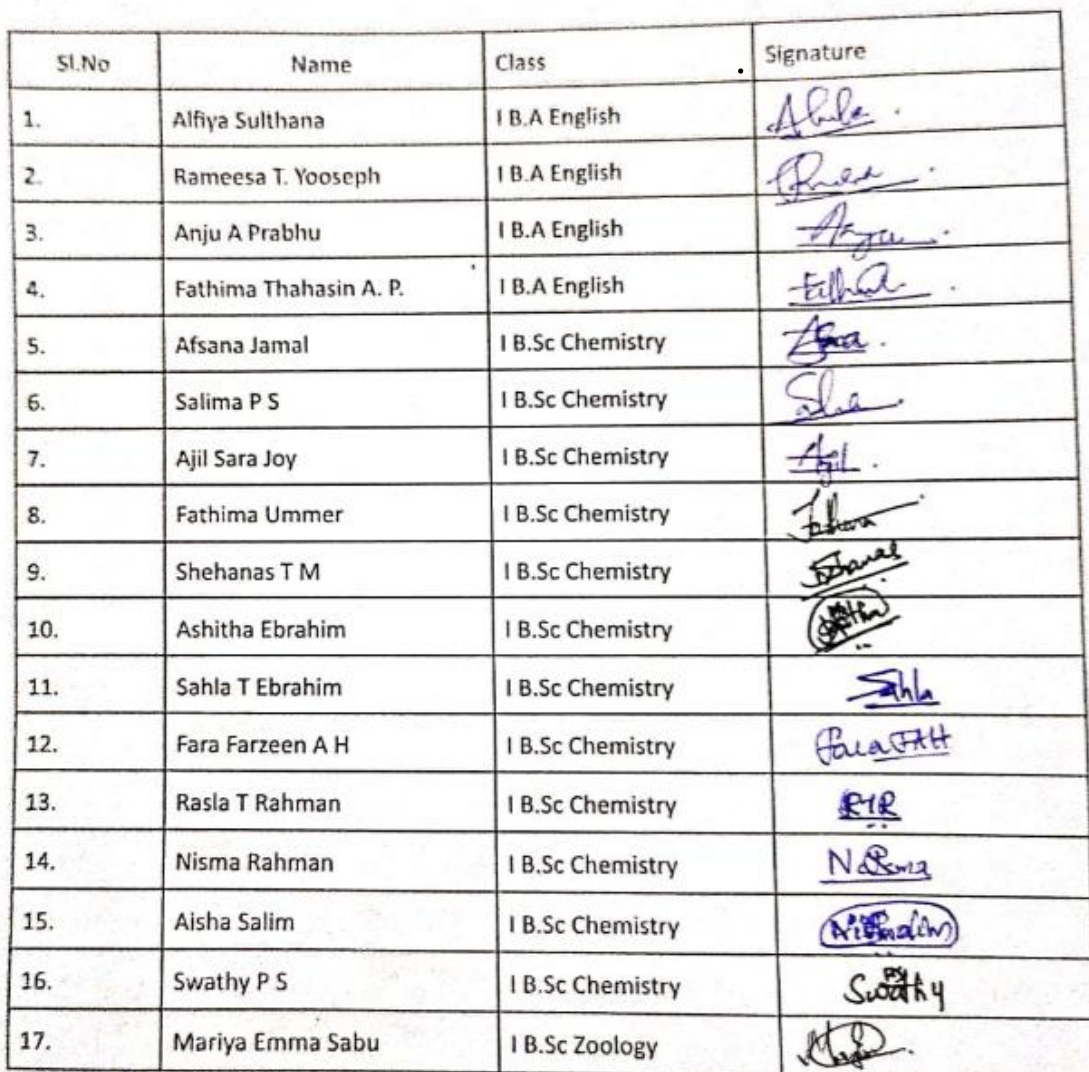 Sl.No Name Class Signature
1. Alfiya Sulthana I B.A English
2. Rameesa T. Yooseph I B.A English
3. Anju A Prabhu I B.A English Anju
4. Fathima Thahasin A. P. I B.A English
5. Afsana Jamal I B.Sc Chemistry
6. Salima P S I B.Sc Chemistry
7. Ajil Sara Joy I B.Sc Chemistry Ajil
8. Fathima Ummer I B.Sc Chemistry
9. Shehanas T M I B.Sc Chemistry
10. Ashitha Ebrahim I B.Sc Chemistry
11. Sahla T Ebrahim I B.Sc Chemistry Sahla
12. Fara Farzeen A H I B.Sc Chemistry Fara FAH
13. Rasla T Rahman I B.Sc Chemistry RTR
14. Nisma Rahman I B.Sc Chemistry
15. Aisha Salim I B.Sc Chemistry
16. Swathy P S I B.Sc Chemistry Swathy
17. Mariya Emma Sabu I B.Sc Zoology